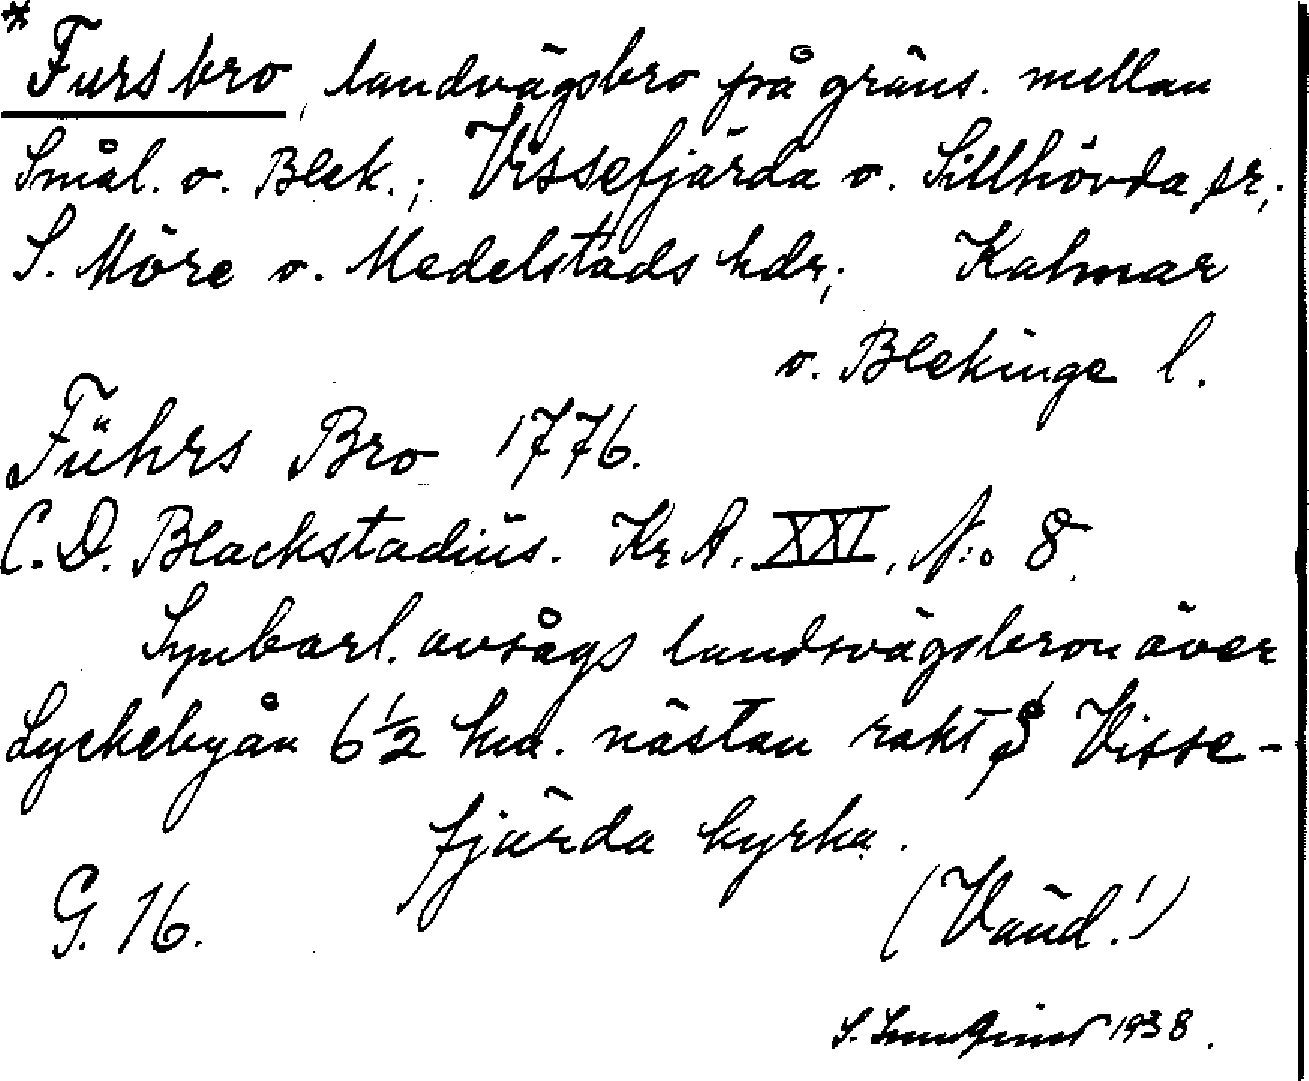 * Fursbro, landvägsbro på gräns. mellan
Smål. o. Blek.; Vissefjärda o. Sillhövda sr,;
S. Möre o. Medelstads hdr,; Kalmar
o. Blekinge l.
Führs Bro 1776.
C. D. Blackstadius. Kr A. XXI, N:o 8.
Synbarl. avsågs landsvägsbron över
Lyckebyån 6½ km. nästan rakt S Visse-
fjärda kyrka.
G. 16.
(Vänd!)
S. 1938.